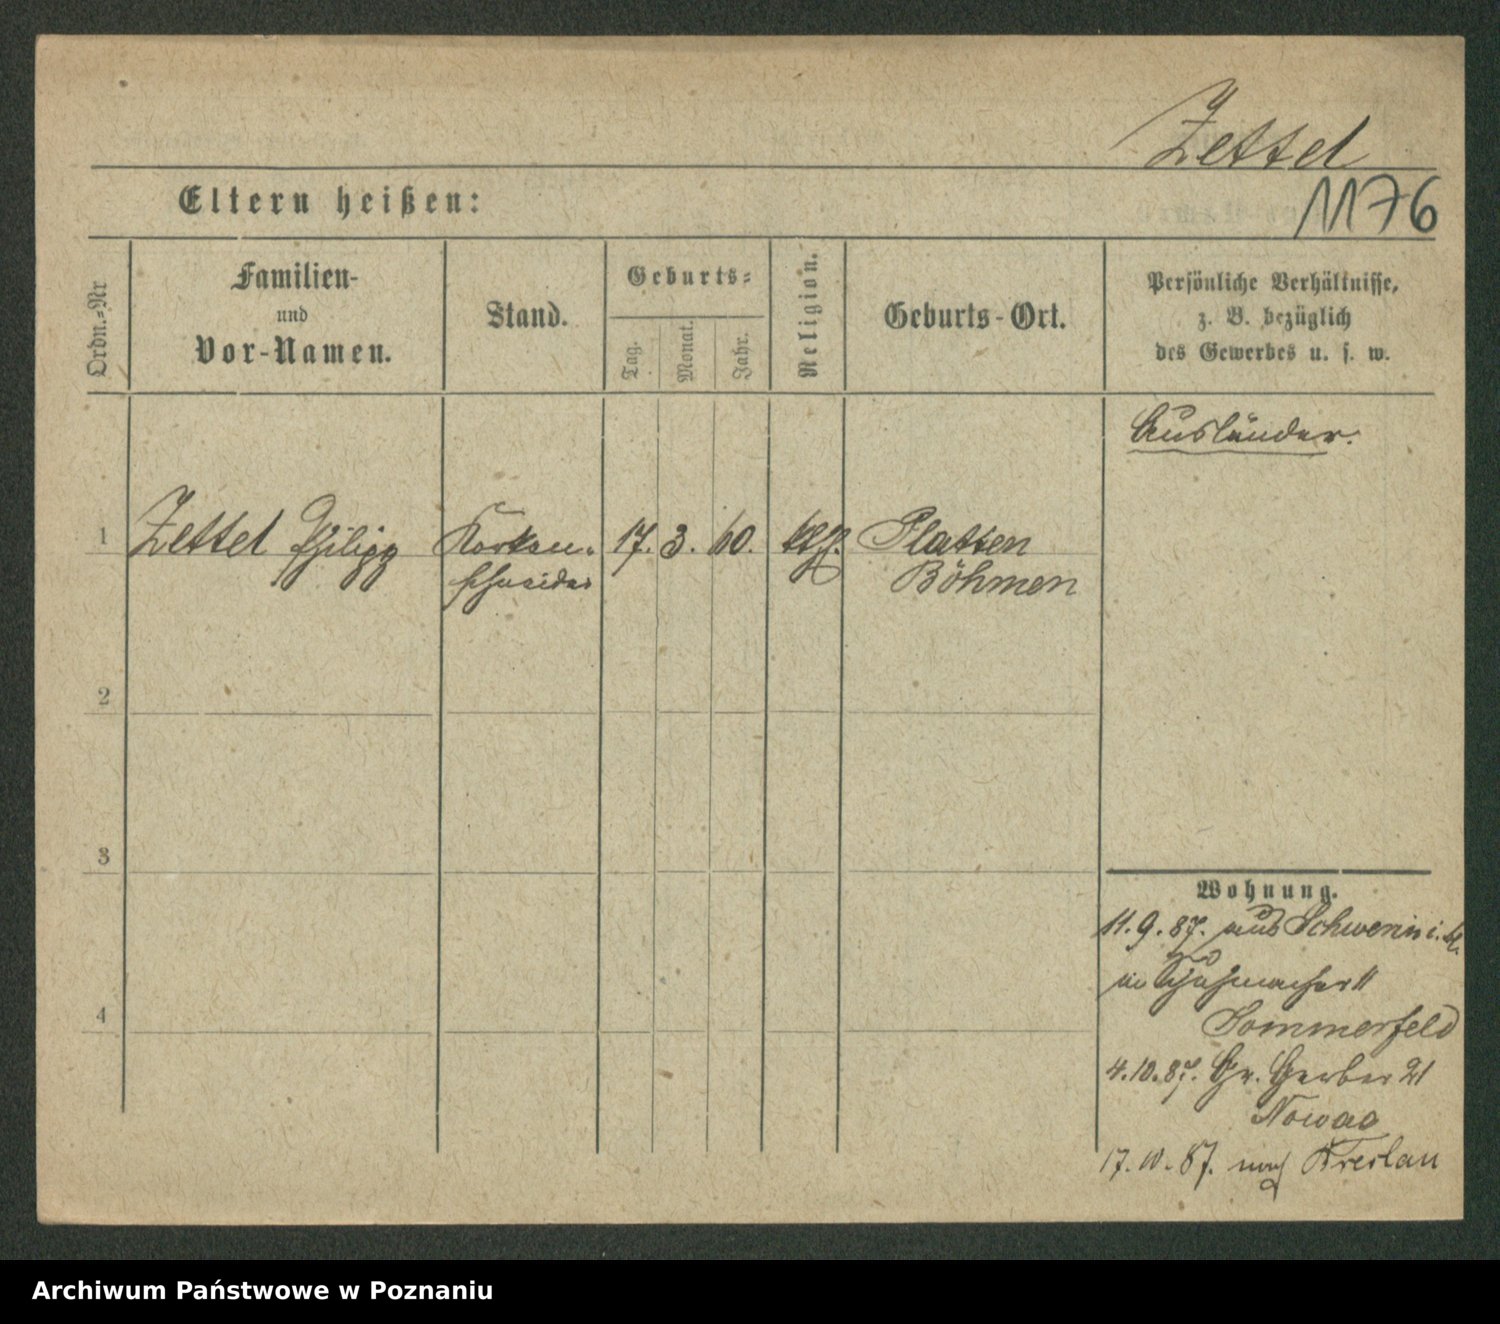 Zettel
Eltern heißen:
1176
Ordn.-Nr
Familien-
und
Vor-Namen.
Stand.
Geburts-
Tag.
Monat.
Jahr.
Religion.
Geburts-Ort.
Persönliche Verhältnisse,
z. B. bezüglich
des Gewerbes u. s. w.
Ausländer.
1 Zettel Philipp Korken- 17. 3. 60. kth. Platten
schneider Böhmen
2
3
4
Wohnung.
11.9.87. aus Schwerin i.
in Schuhmacher 11
Sommerfeld
4.10.87. Gr. Gerber 21
Nowag
17.10.87. nach Breslau
Archiwum Państwowe w Poznaniu